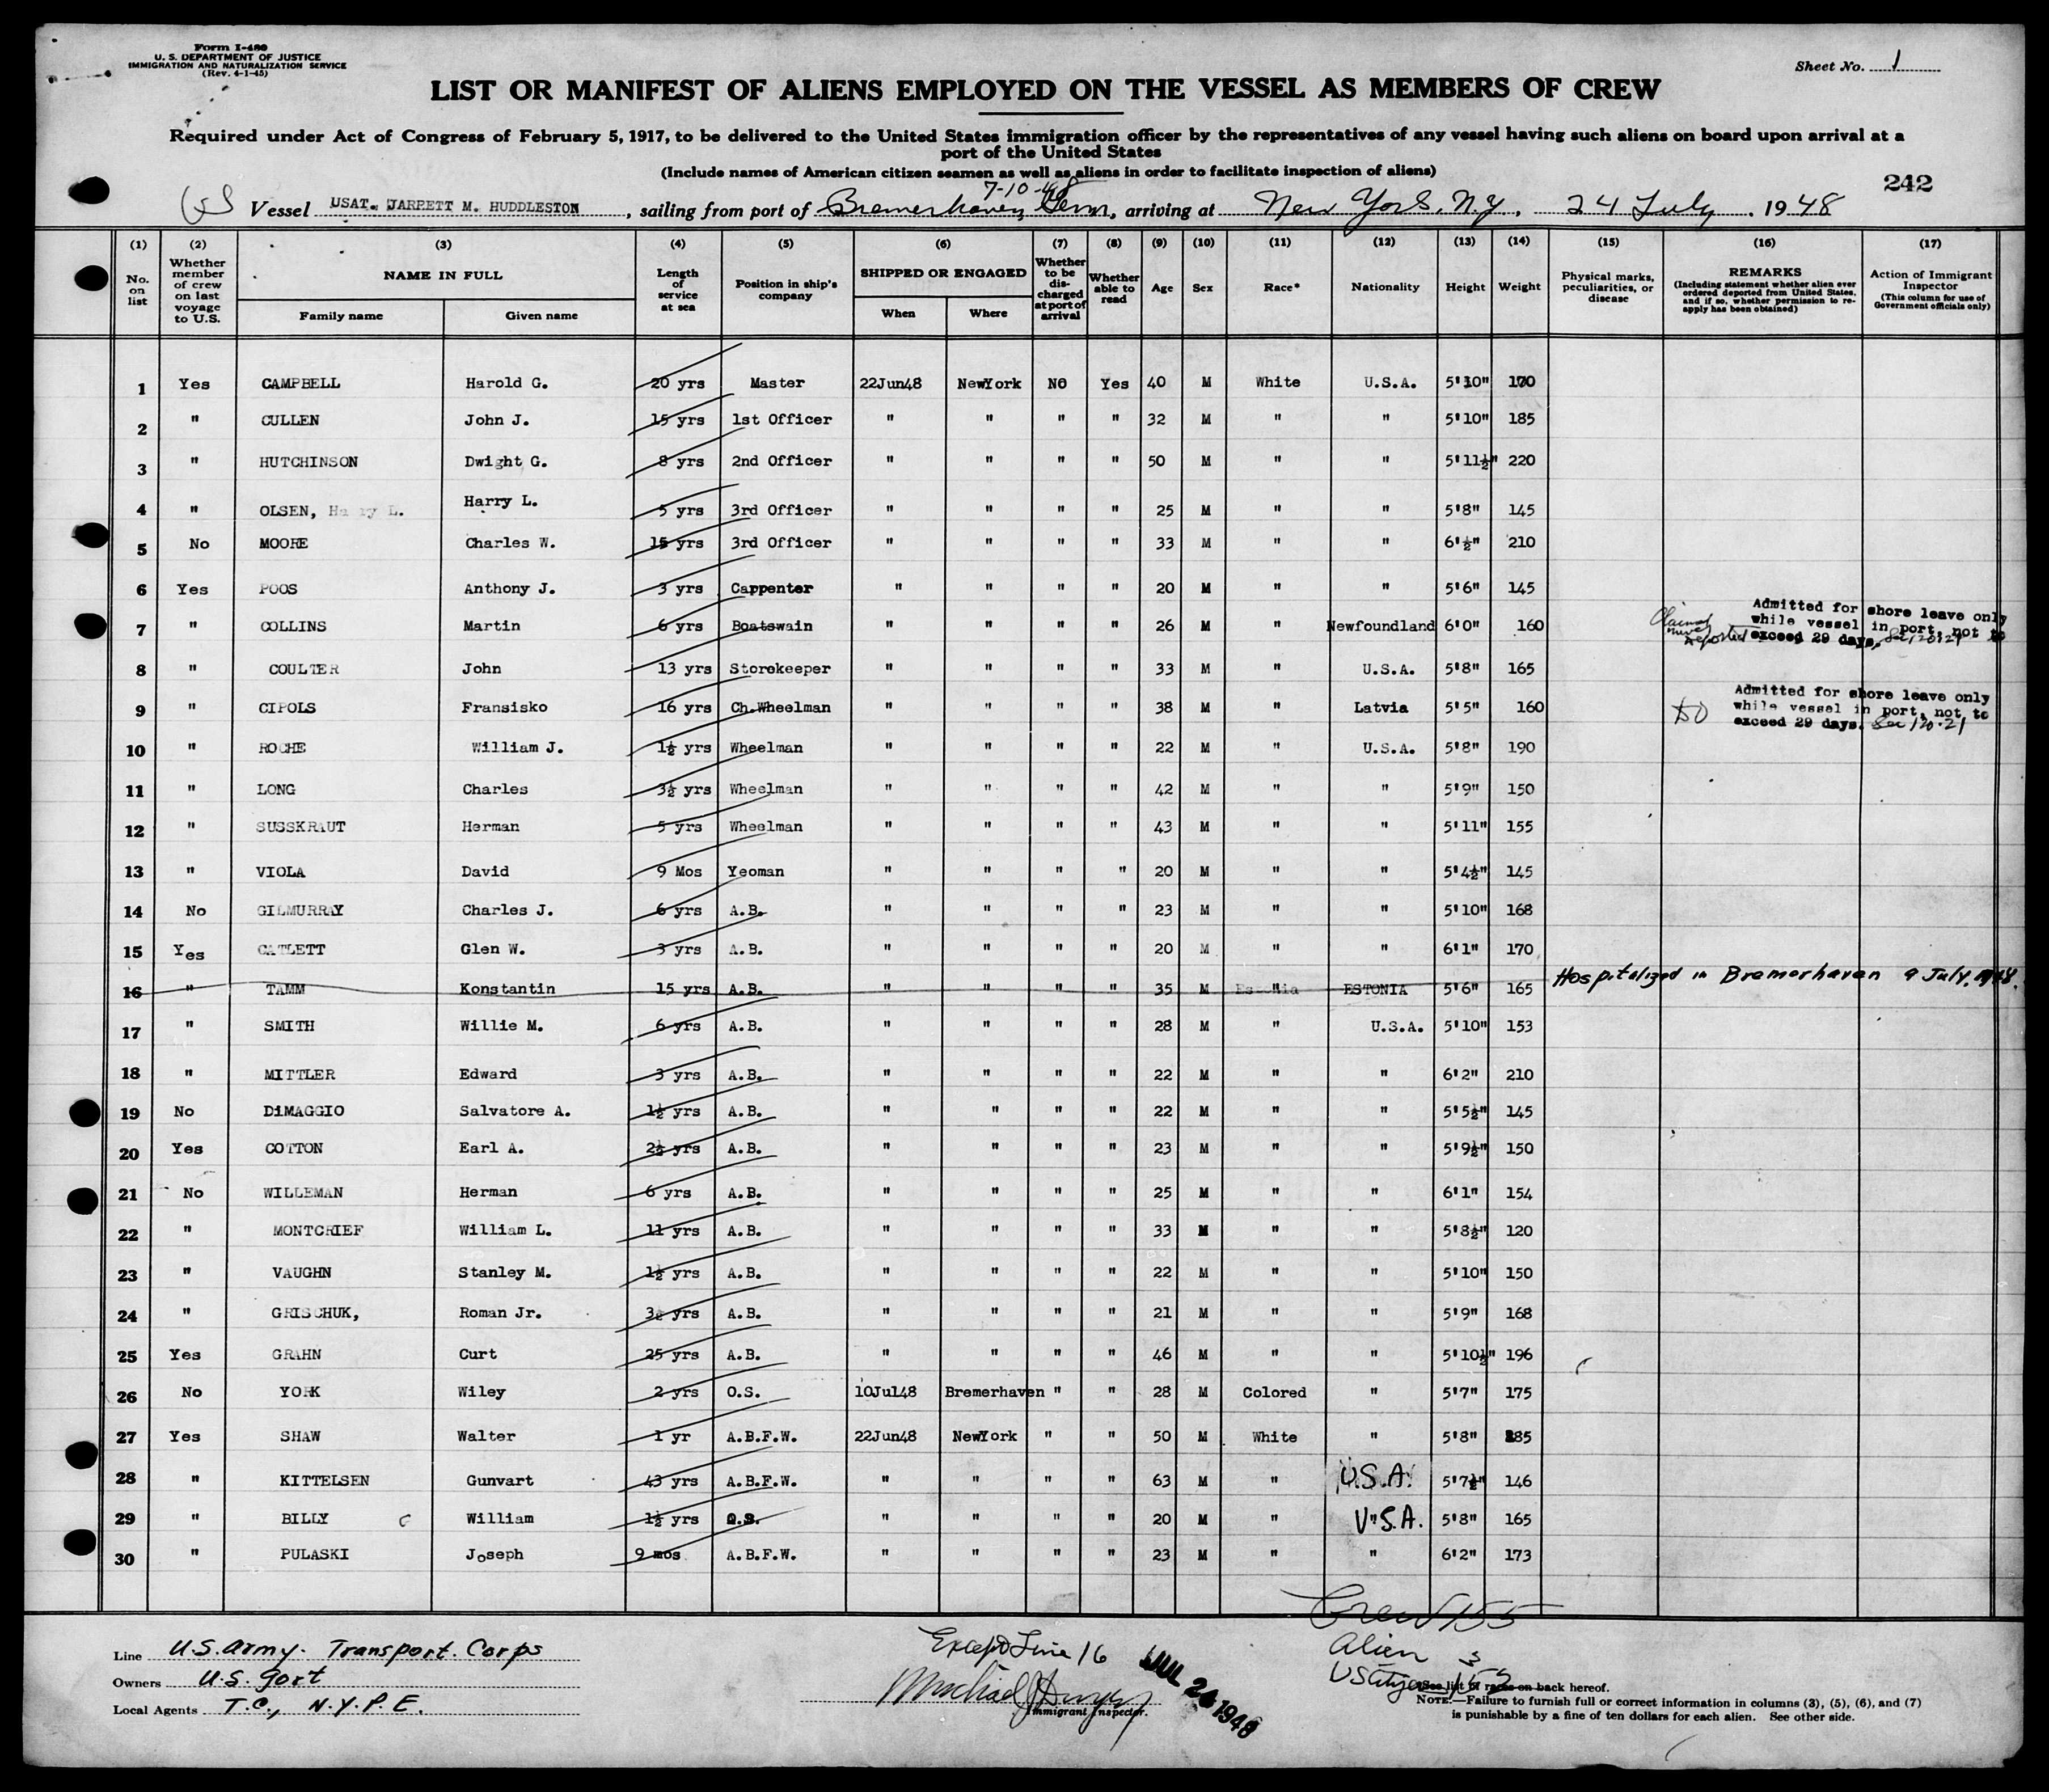 Form I-480
U. S. DEPARTMENT OF JUSTICE
IMMIGRATION AND NATURALIZATION SERVICE
(Rev. 4-1-45)
Sheet No. 1
LIST OR MANIFEST OF ALIENS EMPLOYED ON THE VESSEL AS MEMBERS OF CREW
Required under Act of Congress of February 5, 1917, to be delivered to the United States immigration officer by the representatives of any vessel having such aliens on board upon arrival at a
port of the United States
(Include names of American citizen seamen as well as aliens in order to facilitate inspection of aliens)
242
7-10-48
Vessel USAT. JARRETT M. HUDDLESTON, sailing from port of Bremerhaven, Germ, arriving at New York, N.Y., 24 July, 1948
(1) No. on list
(2) Whether member of crew on last voyage to U.S.
(3) NAME IN FULL Family name Given name
(4) Length of service at sea
(5) Position in ship's company
(6) SHIPPED OR ENGAGED When Where
(7) Whether to be discharged at port of arrival
(8) Whether able to read
(9) Age
(10) Sex
(11) Race*
(12) Nationality
(13) Height
(14) Weight
(15) Physical marks, peculiarities, or disease
(16) REMARKS (Including statement whether alien ever ordered deported from United States, and if so, whether permission to re-apply has been obtained)
(17) Action of Immigrant Inspector (This column for use of Government officials only)
1 Yes CAMPBELL Harold G. 20 yrs Master 22Jun48 NewYork NO Yes 40 M White U.S.A. 5'10" 170
2 " CULLEN John J. 15 yrs 1st Officer " " " " 32 M " " 5'10" 185
3 " HUTCHINSON Dwight G. 8 yrs 2nd Officer " " " " 50 M " " 5'11½" 220
4 " OLSEN, Harry L. Harry L. 5 yrs 3rd Officer " " " " 25 M " " 5'8" 145
5 No MOORE Charles W. 15 yrs 3rd Officer " " " " 33 M " " 6'½" 210
6 Yes POOS Anthony J. 3 yrs Cappenter " " " " 20 M " " 5'6" 145
7 " COLLINS Martin 6 yrs Boatswain " " " " 26 M " Newfoundland 6'0" 160 Admitted for shore leave only while vessel in port, not to exceed 29 days.
8 " COULTER John 13 yrs Storekeeper " " " " 33 M " U.S.A. 5'8" 165
9 " CIPOLS Fransisko 16 yrs Ch.Wheelman " " " " 38 M " Latvia 5'5" 160 DO Admitted for shore leave only while vessel in port, not to exceed 29 days. Sec 120.21
10 " ROCHE William J. 1½ yrs Wheelman " " " " 22 M " U.S.A. 5'8" 190
11 " LONG Charles 3½ yrs Wheelman " " " " 42 M " " 5'9" 150
12 " SUSSKRAUT Herman 5 yrs Wheelman " " " " 43 M " " 5'11" 155
13 " VIOLA David 9 Mos Yeoman " " " " 20 M " " 5'4½" 145
14 No GILMURRAY Charles J. 6 yrs A.B. " " " " 23 M " " 5'10" 168
15 Yes CATLETT Glen W. 3 yrs A.B. " " " " 20 M " " 6'1" 170
16 " TAMM Konstantin 15 yrs A.B. " " " " 35 M " ESTONIA 5'6" 165 Hospitalized in Bremerhaven 9 July, 1948.
17 " SMITH Willie M. 6 yrs A.B. " " " " 28 M " U.S.A. 5'10" 153
18 " MITTLER Edward 3 yrs A.B. " " " " 22 M " " 6'2" 210
19 No DiMAGGIO Salvatore A. 1½ yrs A.B. " " " " 22 M " " 5'5½" 145
20 Yes COTTON Earl A. 2½ yrs A.B. " " " " 23 M " " 5'9½" 150
21 No WILLEMAN Herman 6 yrs A.B. " " " " 25 M " " 6'1" 154
22 " MONTCRIEF William L. 11 yrs A.B. " " " " 33 M " " 5'8½" 120
23 " VAUGHN Stanley M. 1½ yrs A.B. " " " " 22 M " " 5'10" 150
24 " GRISCHUK, Roman Jr. 3½ yrs A.B. " " " " 21 M " " 5'9" 168
25 Yes GRAHN Curt 25 yrs A.B. " " " " 46 M " " 5'10½" 196
26 No YORK Wiley 2 yrs O.S. 10Jul48 Bremerhaven " " 28 M Colored " 5'7" 175
27 Yes SHAW Walter 1 yr A.B.F.W. 22Jun48 NewYork " " 50 M White " 5'8" 185
28 " KITTELSEN Gunvart 43 yrs A.B.F.W. " " " " 63 M " U.S.A. 5'7½" 146
29 " BILLY William 1½ yrs O.S. " " " " 20 M " U.S.A. 5'8" 165
30 " PULASKI Joseph 9 mos A.B.F.W. " " " " 23 M " " 6'2" 173
Crew 155
Alien 3
US Citizens 152
Line U.S. Army. Transport. Corps
Owners U.S. Govt
Local Agents T.C., N.Y.P.E.
Except Line 16
JUL 24 1948
Immigrant Inspector.
*See list of races on back hereof.
NOTE.—Failure to furnish full or correct information in columns (3), (5), (6), and (7)
is punishable by a fine of ten dollars for each alien. See other side.